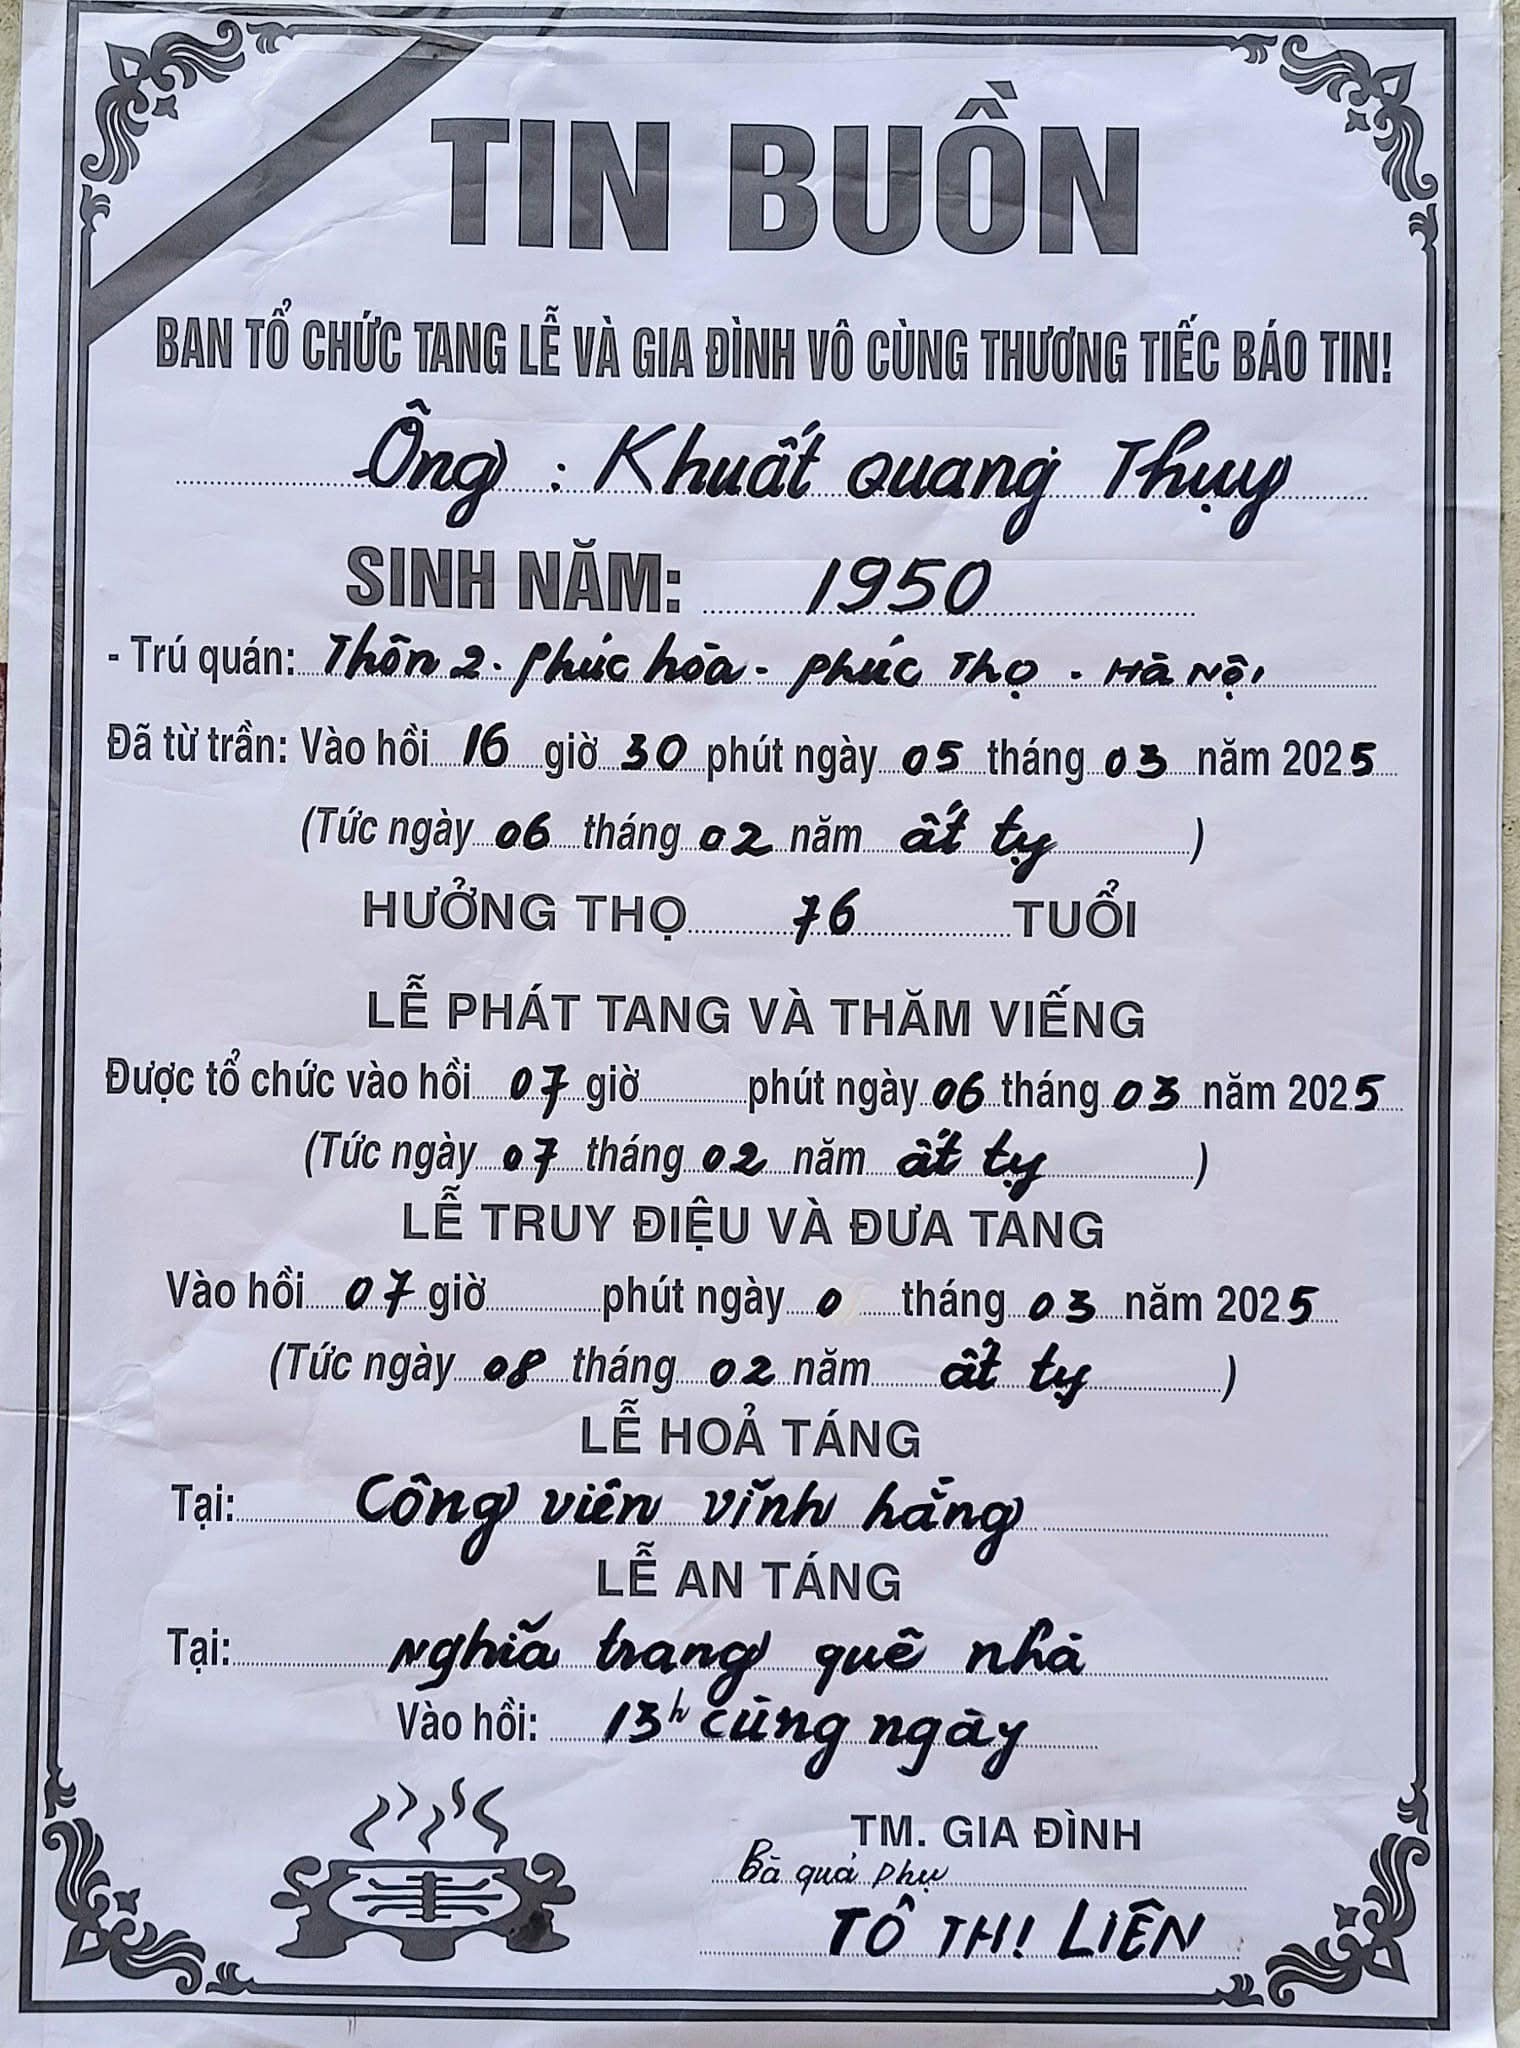 TIN BUỒN
BAN TỔ CHỨC TANG LỄ VÀ GIA ĐÌNH VÔ CÙNG THƯƠNG TIẾC BÁO TIN!
Ông : Khuất Quang Thụy
SINH NĂM: 1950
- Trú quán: Thôn 2 - Phúc hòa - Phúc Thọ - Hà Nội
Đã từ trần: Vào hồi 16 giờ 30 phút ngày 05 tháng 03 năm 2025
(Tức ngày 06 tháng 02 năm ất tỵ )
HƯỞNG THỌ 76 TUỔI
LỄ PHÁT TANG VÀ THĂM VIẾNG
Được tổ chức vào hồi 07 giờ phút ngày 06 tháng 03 năm 2025
(Tức ngày 07 tháng 02 năm ất tỵ )
LỄ TRUY ĐIỆU VÀ ĐƯA TANG
Vào hồi 07 giờ phút ngày 0 tháng 03 năm 2025
(Tức ngày 08 tháng 02 năm ất tỵ )
LỄ HOẢ TÁNG
Tại: Công viên vĩnh hằng
LỄ AN TÁNG
Tại: Nghĩa trang quê nhà
Vào hồi: 13h cùng ngày
TM. GIA ĐÌNH
Bà quả phụ
TÔ THỊ LIÊN